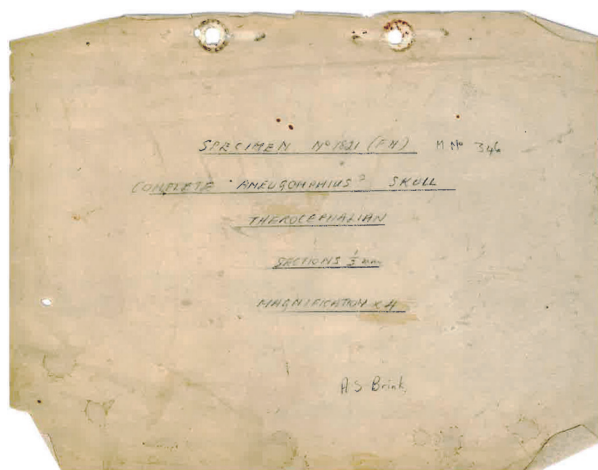 SPECIMEN Nº 1621 (F.N.) M Nº 346
COMPLETE "ANEUGOMPHIUS" SKULL
THEROCEPHALIAN
SECTIONS 1/3 mm
MAGNIFICATION x 4
A S Brink